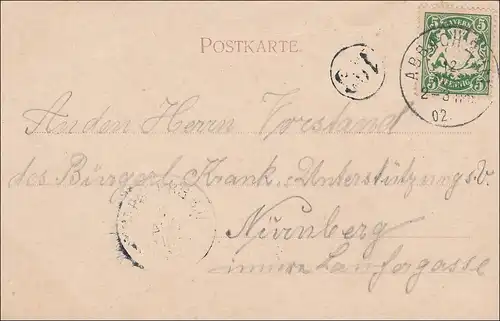 POSTKARTE.
5 BAYERN 5
PFENNIG
12
2-3 N
02
An den Herrn Vorstand
des Bürgerl. Krank. Unterstützungsv.
Nürnberg
innere Laufergasse